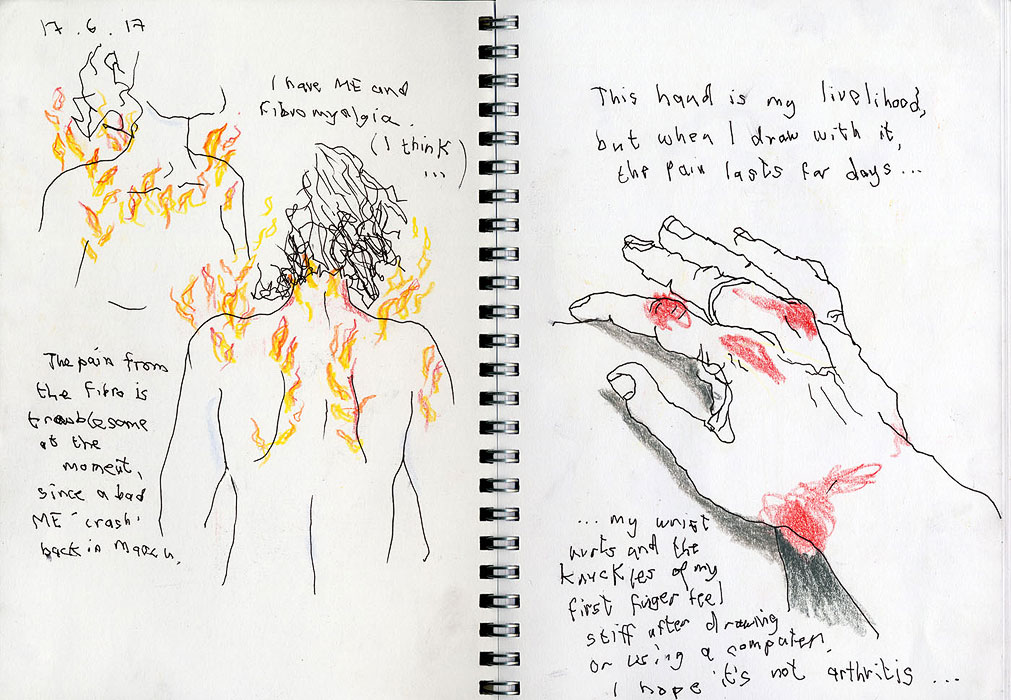 17.6.17
I have ME and
Fibromyalgia.
(I think
...)
The pain from
the Fibro is
troublesome
at the
moment,
since a bad
ME 'crash'
back in March.
This hand is my livelihood,
but when I draw with it,
the pain lasts for days...
...my wrist
hurts and the
knuckles of my
first finger feel
stiff after drawing
or using a computer.
I hope it's not arthritis...